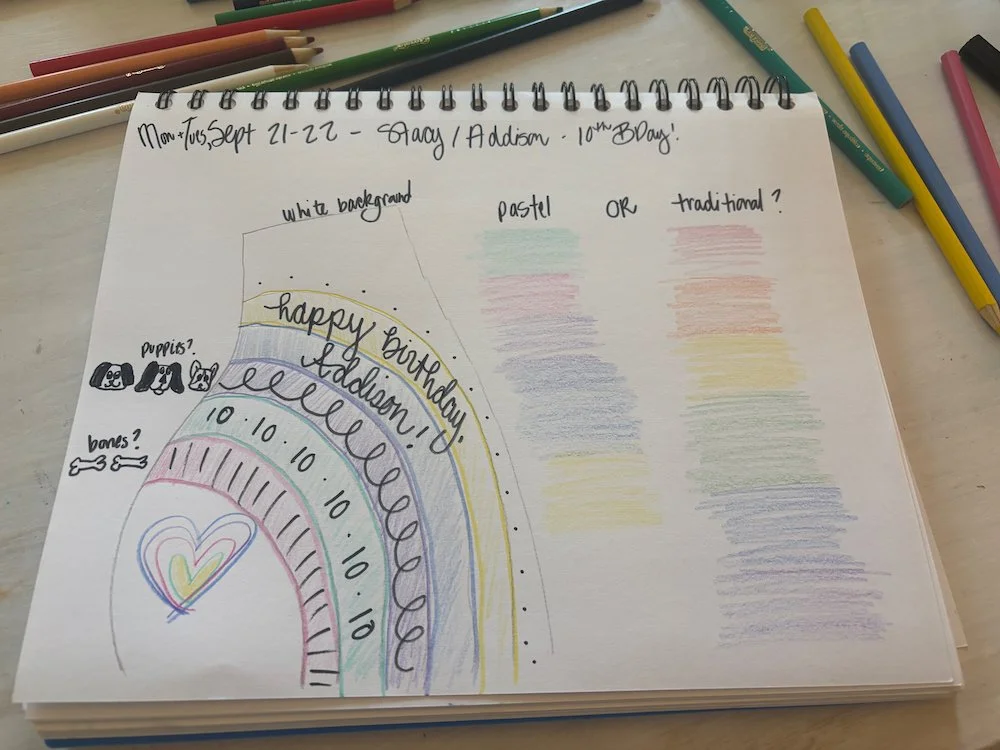 Mon + Tues, Sept 21-22 - Stacy / Addison · 10th BDay!
white background
pastel OR traditional?
happy birthday,
Addison!
puppies?
10 · 10 · 10 · 10 · 10 · 10
bones?